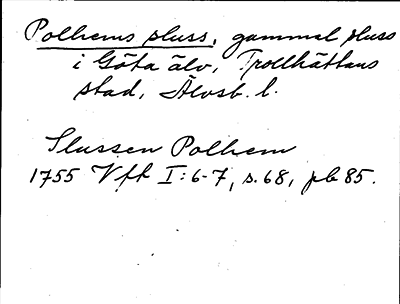 Polhems sluss, gammal sluss
i Göta älv, Trollhättans
stad, Älvsb. l.
Slussen Polhem
1755 Vfk I:6-7, s.68, pl 85.